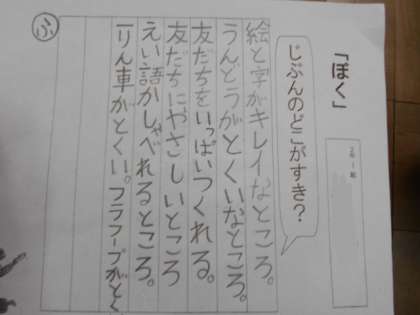 「ぼく」
2年1組
じぶんのどこがすき?
絵と字がキレイなところ。
うんどうがとくいなところ。
友だちをいっぱいつくれる。
友だちにやさしいところ
えい語がしゃべれるところ。
一りん車がとくい。フラフープがとく
ふ